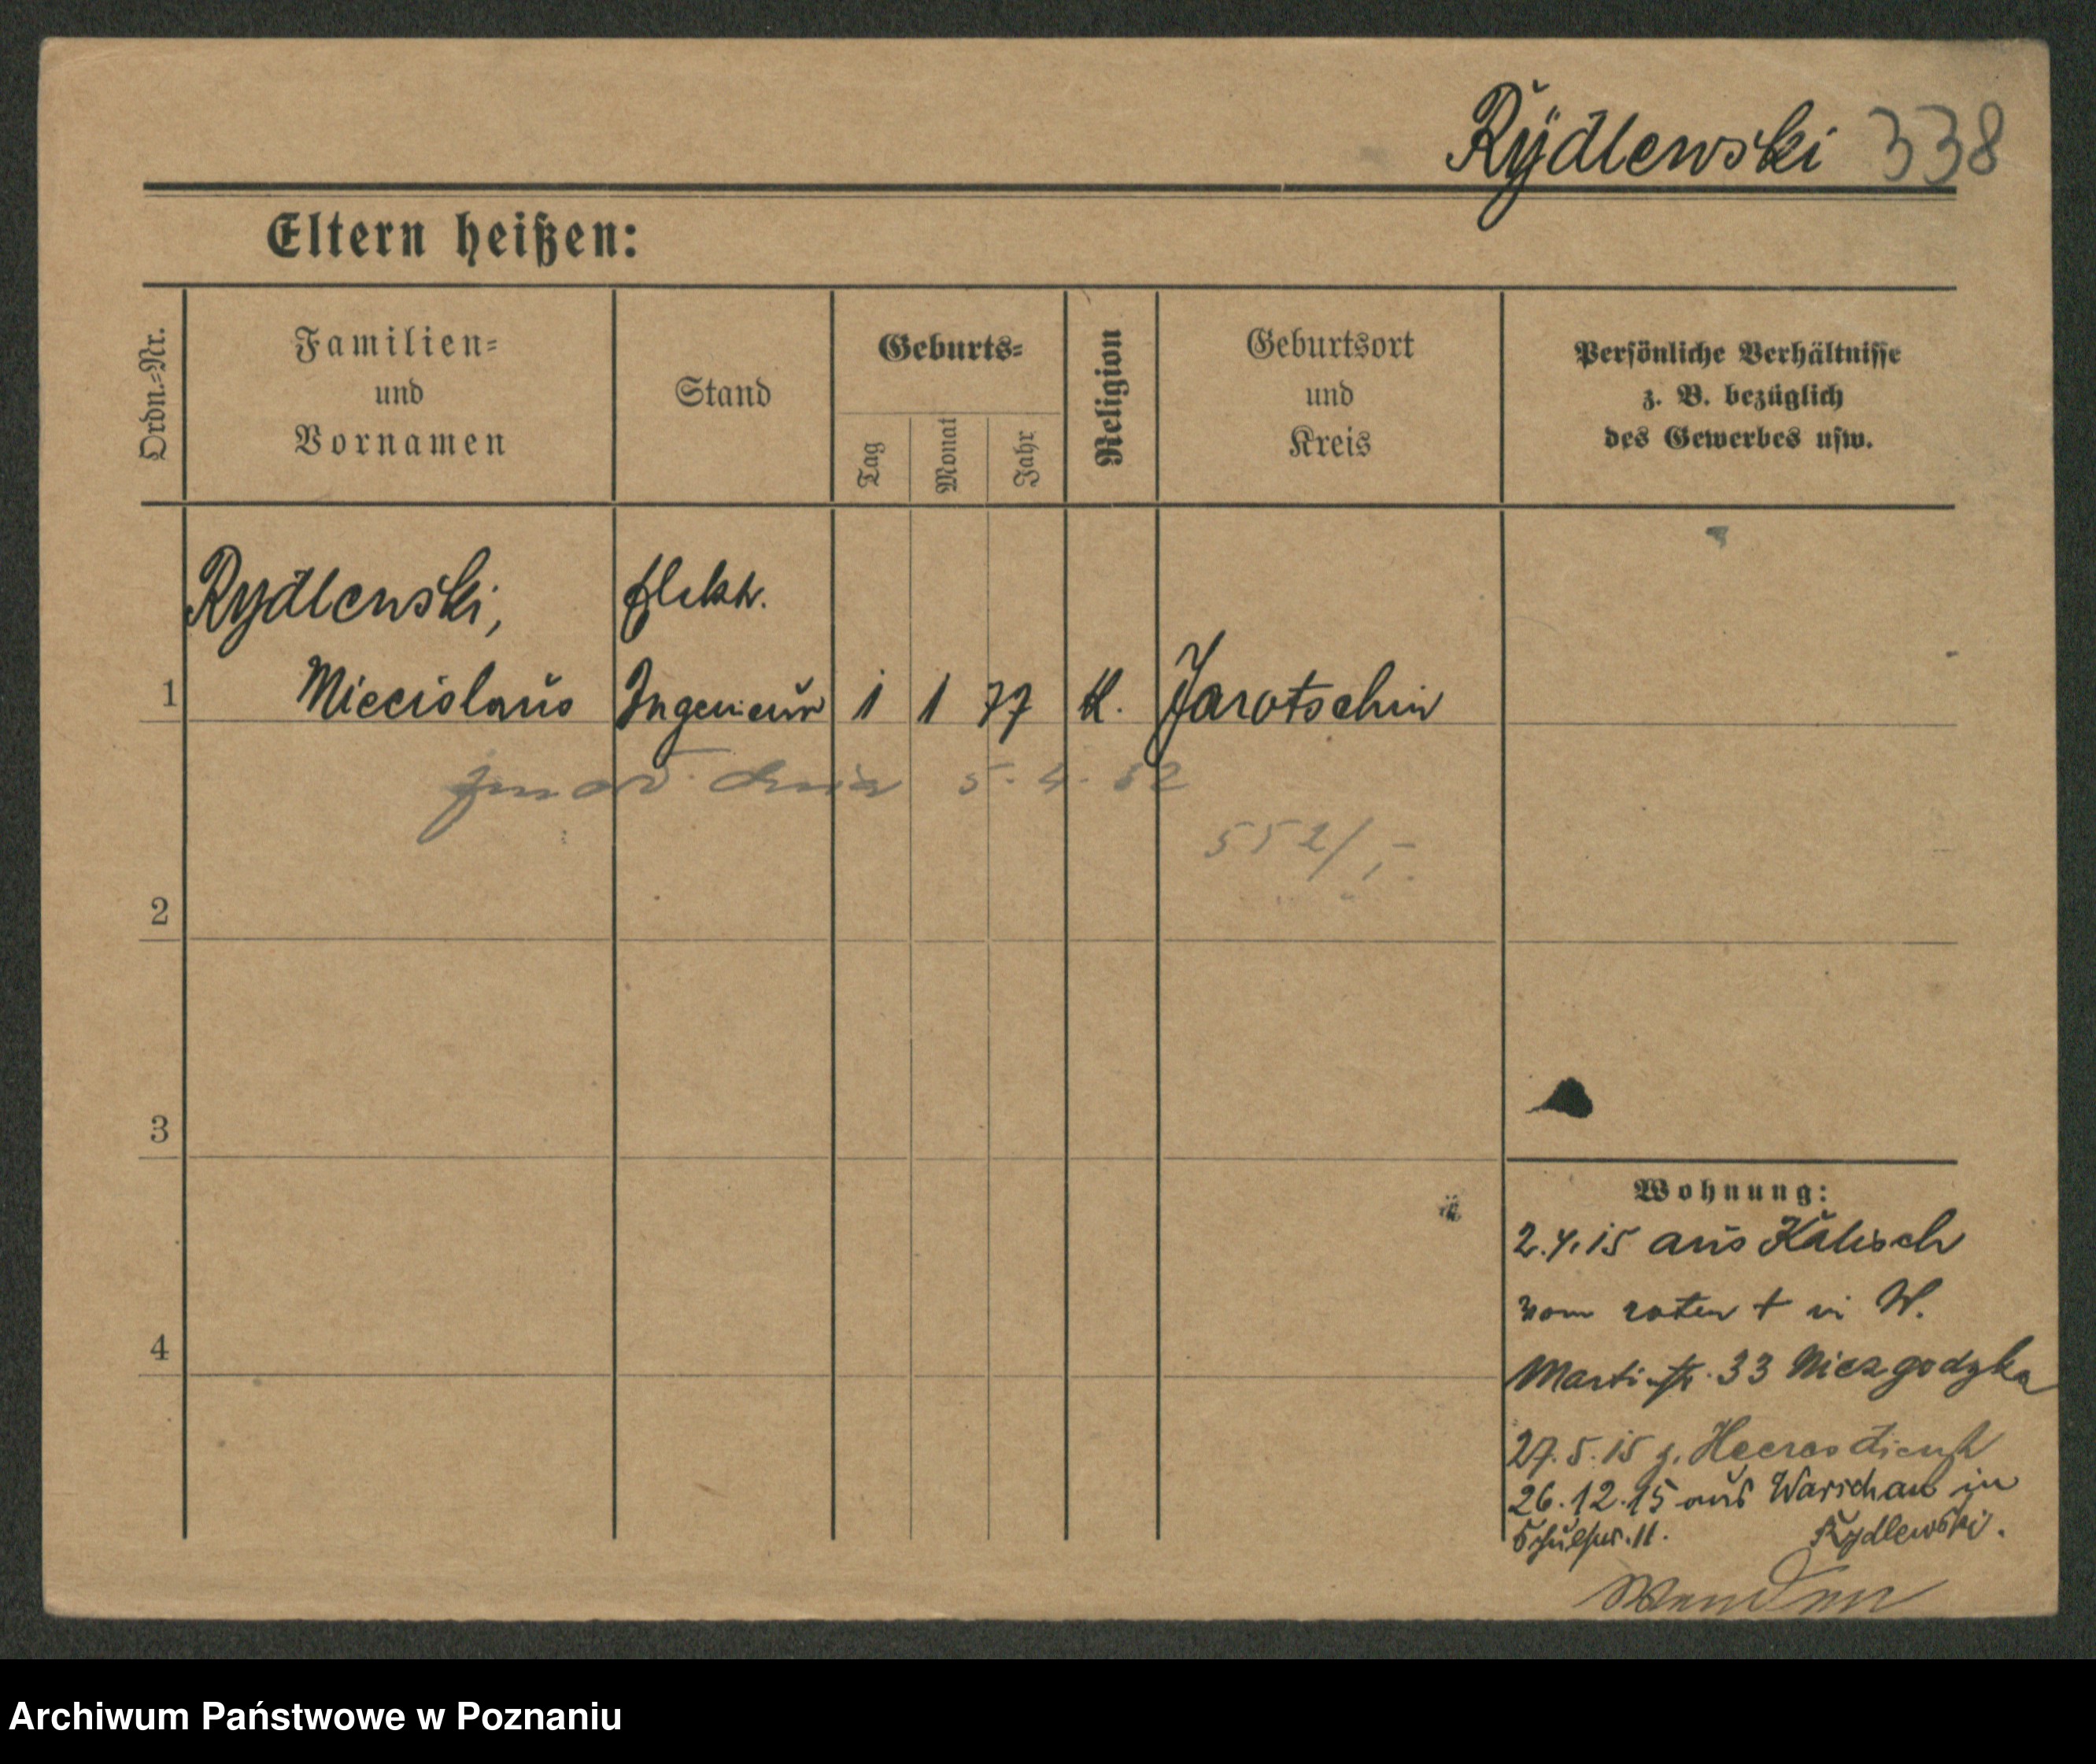 Rydlewski 338
Eltern heißen:
Ordn.=Nr.
Familien=
und
Vornamen
Stand
Geburts=
Tag
Monat
Jahr
Religion
Geburtsort
und
Kreis
Persönliche Verhältnisse
z. B. bezüglich
des Gewerbes usw.
Rydlewski, Elektr.
1 Miecislaus Ingenieur 1 1 77 K. Jarotschin
zmarł dnia 5. 4. 52
552/
2
3
4
Wohnung:
2.4.15 aus Kalisch
vom roten + in W.
Martinstr. 33 Niezgodzka
27.5.15 z. Heeresdienst
26.12.15 aus Warschau in
Schulstr. 11. Rydlewski.
Wenden
Archiwum Państwowe w Poznaniu